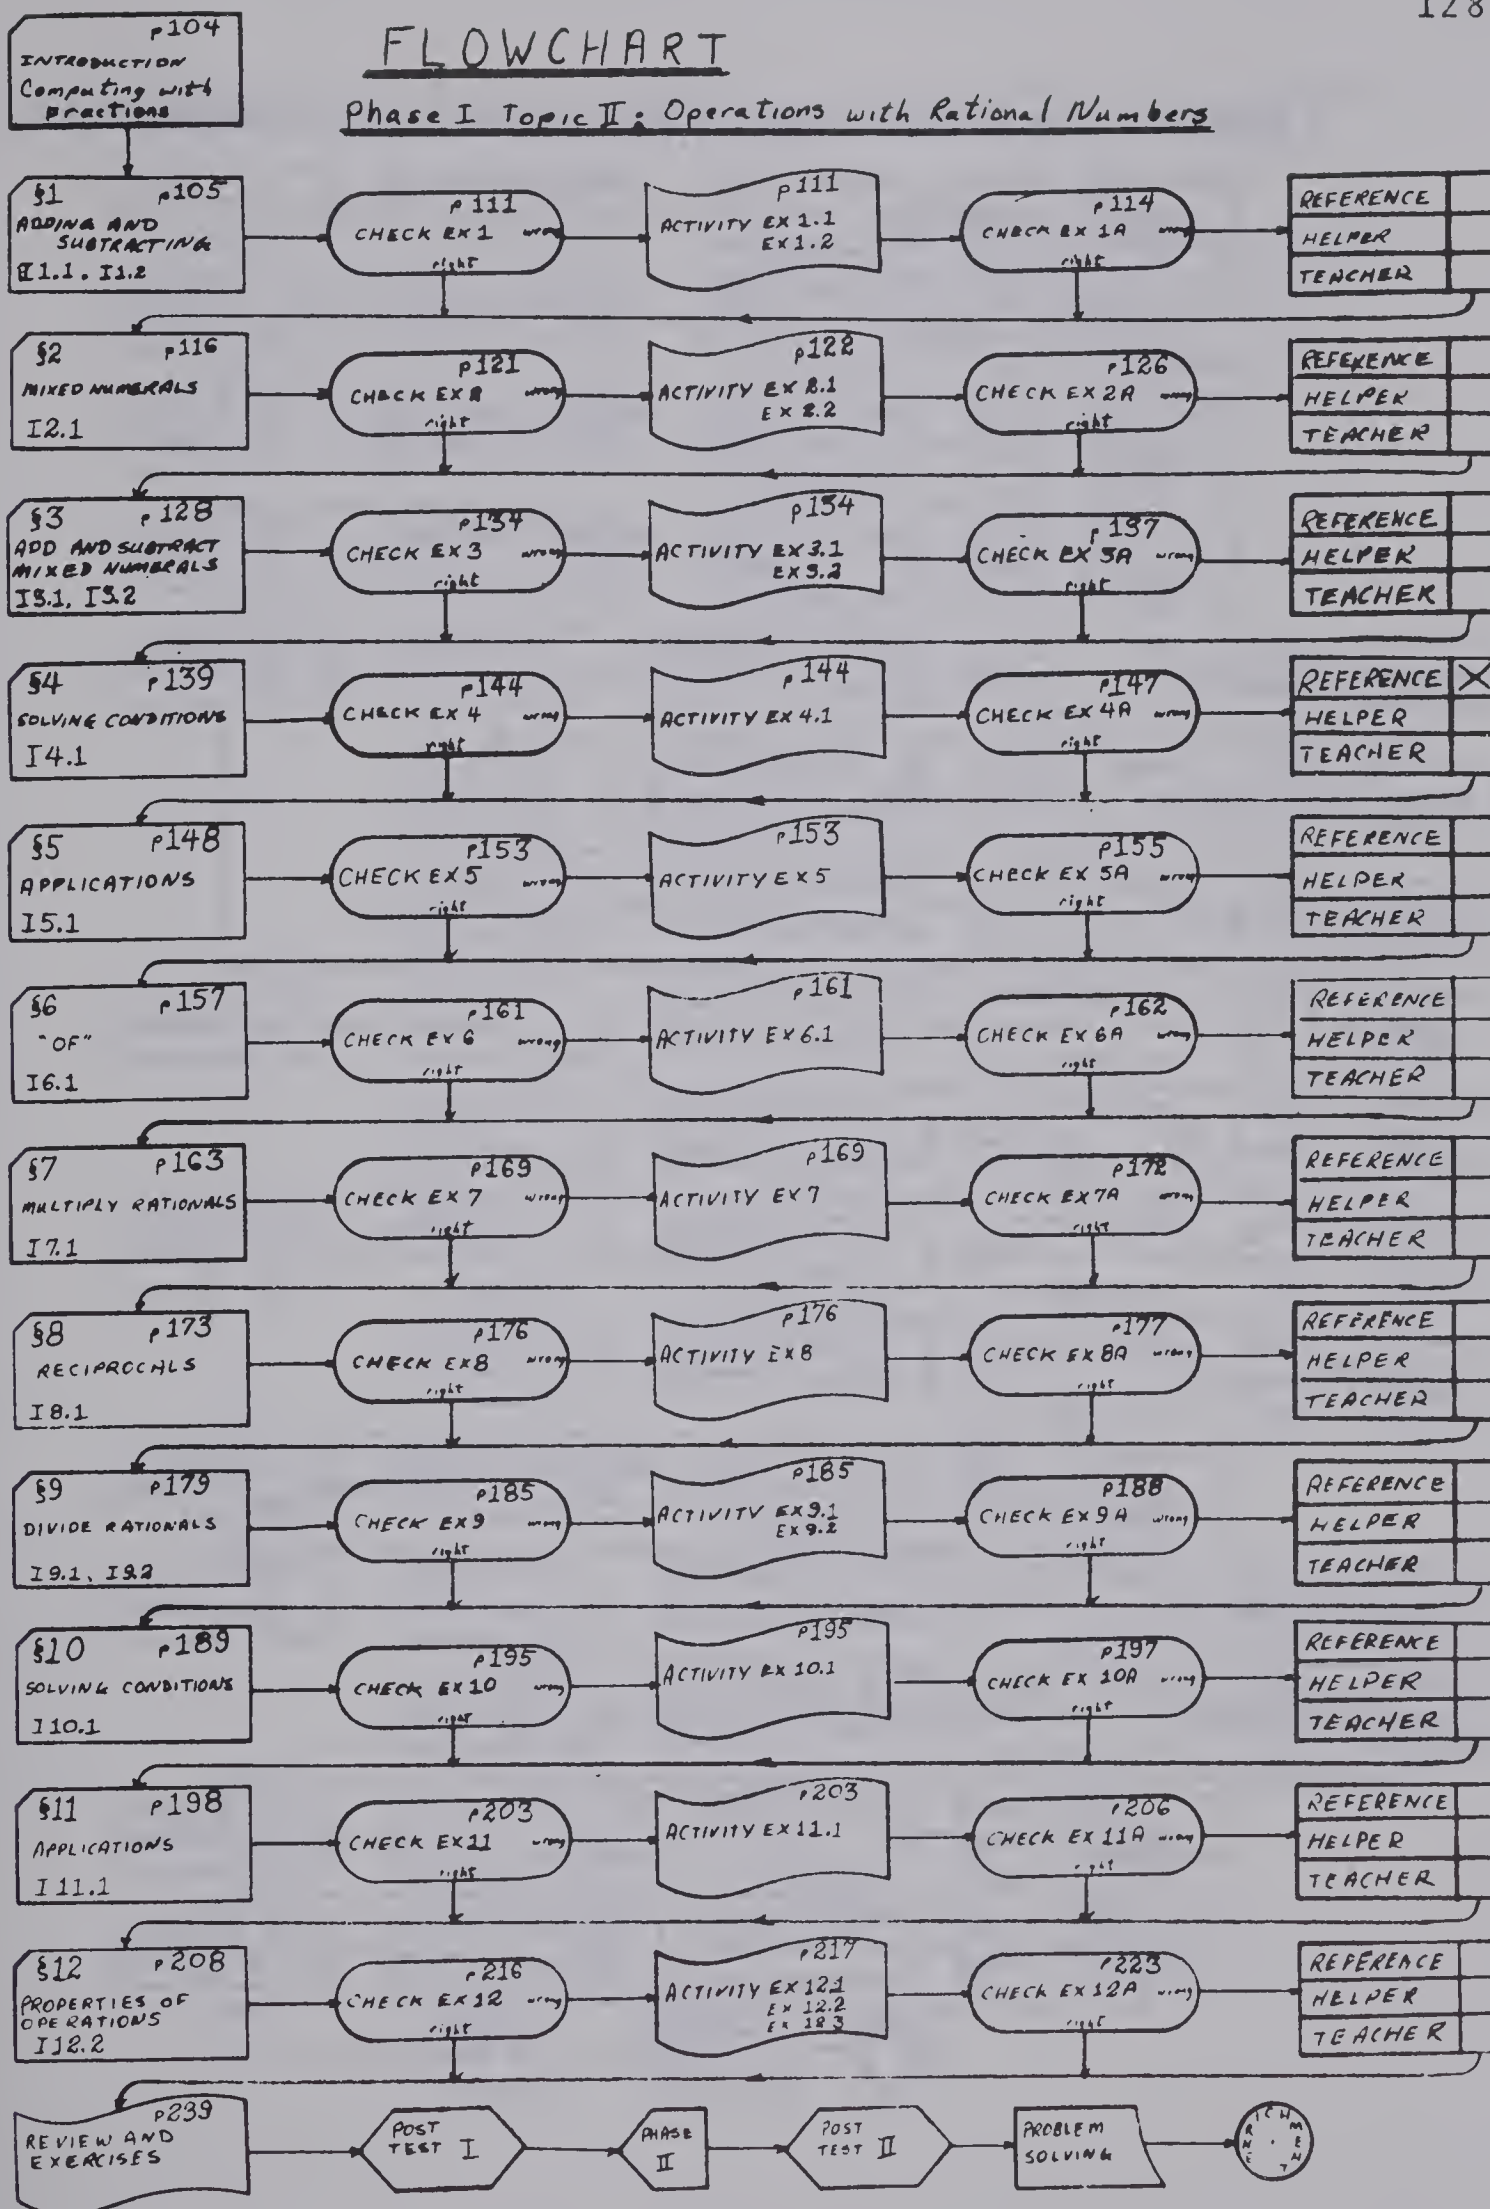 128
p104
INTRODUCTION
Computing with
Fractions
FLOWCHART
Phase I Topic II: Operations with Rational Numbers
§1 p105
ADDING AND
SUBTRACTING
I1.1, I1.2
p111
CHECK EX 1 wrong
right
p111
ACTIVITY EX 1.1
EX 1.2
p114
CHECK EX 1A wrong
right
REFERENCE
HELPER
TEACHER
§2 p116
MIXED NUMERALS
I2.1
p121
CHECK EX 2 wrong
right
p122
ACTIVITY EX 2.1
EX 2.2
p126
CHECK EX 2A wrong
right
REFERENCE
HELPER
TEACHER
§3 p128
ADD AND SUBTRACT
MIXED NUMERALS
I3.1, I3.2
p134
CHECK EX 3 wrong
right
p134
ACTIVITY EX 3.1
EX 3.2
p137
CHECK EX 3A wrong
right
REFERENCE
HELPER
TEACHER
§4 p139
SOLVING CONDITIONS
I4.1
p144
CHECK EX 4 wrong
right
p144
ACTIVITY EX 4.1
p147
CHECK EX 4A wrong
right
REFERENCE X
HELPER
TEACHER
§5 p148
APPLICATIONS
I5.1
p153
CHECK EX 5 wrong
right
p153
ACTIVITY EX 5
p155
CHECK EX 5A wrong
right
REFERENCE
HELPER
TEACHER
§6 p157
"OF"
I6.1
p161
CHECK EX 6 wrong
right
p161
ACTIVITY EX 6.1
p162
CHECK EX 6A wrong
right
REFERENCE
HELPER
TEACHER
§7 p163
MULTIPLY RATIONALS
I7.1
p169
CHECK EX 7 wrong
right
p169
ACTIVITY EX 7
p172
CHECK EX 7A wrong
right
REFERENCE
HELPER
TEACHER
§8 p173
RECIPROCALS
I8.1
p176
CHECK EX 8 wrong
right
p176
ACTIVITY EX 8
p177
CHECK EX 8A wrong
right
REFERENCE
HELPER
TEACHER
§9 p179
DIVIDE RATIONALS
I9.1, I9.2
p185
CHECK EX 9 wrong
right
p185
ACTIVITY EX 9.1
EX 9.2
p188
CHECK EX 9A wrong
right
REFERENCE
HELPER
TEACHER
§10 p189
SOLVING CONDITIONS
I10.1
p195
CHECK EX 10 wrong
right
p195
ACTIVITY EX 10.1
p197
CHECK EX 10A wrong
right
REFERENCE
HELPER
TEACHER
§11 p198
APPLICATIONS
I11.1
p203
CHECK EX 11 wrong
right
p203
ACTIVITY EX 11.1
p206
CHECK EX 11A wrong
right
REFERENCE
HELPER
TEACHER
§12 p208
PROPERTIES OF
OPERATIONS
I12.2
p216
CHECK EX 12 wrong
right
p217
ACTIVITY EX 12.1
EX 12.2
EX 12.3
p223
CHECK EX 12A wrong
right
REFERENCE
HELPER
TEACHER
p239
REVIEW AND
EXERCISES
POST
TEST I
PHASE
II
POST
TEST II
PROBLEM
SOLVING
ENRICHMENT